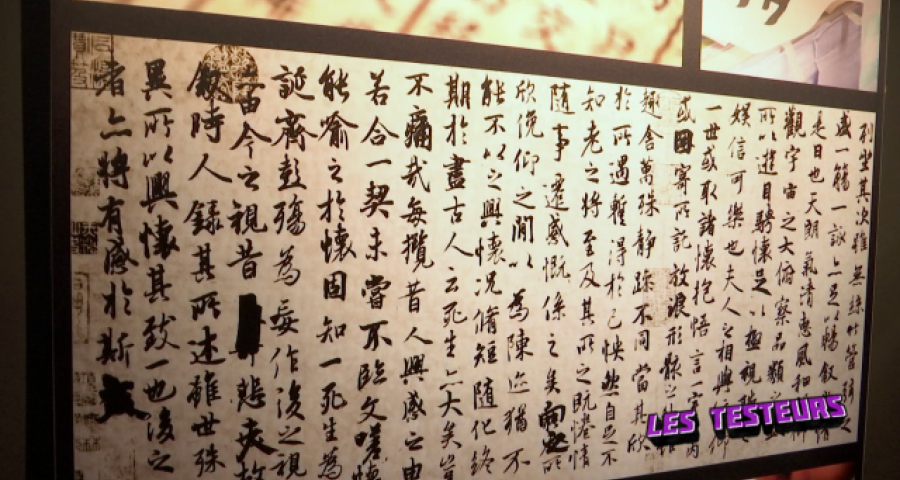 列坐其次雖無絲竹管
盛一觴一詠亦足以暢敘
是日也天朗氣清惠風和
觀宇宙之大俯察品類之
所以遊目騁懷足以極視
娛信可樂也夫人之相與
一世或取諸懷抱悟言一室
或因寄所託放浪形骸之
趣舍萬殊靜躁不同當其欣
於所遇暫得於己怏然自足不
知老之將至及其所之既惓情
隨事遷感慨係之矣向之所
欣俛仰之間以為陳迹猶不
能不以之興懷況脩短隨化終
期於盡古人云死生亦大矣豈
不痛哉每攬昔人興感之由
若合一契未嘗不臨文嗟悼
能喻之於懷固知一死生為
誕齊彭殤為妄作後之視
由今之視昔悲夫故
敘時人錄其所述雖世殊
異所以興懷其致一也後之
者亦將有感於斯文
LES TESTEURS